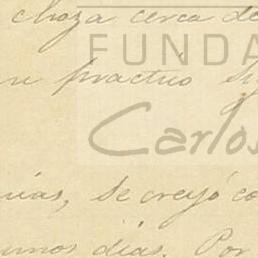 choza cerca de
FUNDA
practicó
Carlos
se creyó co
días. Por